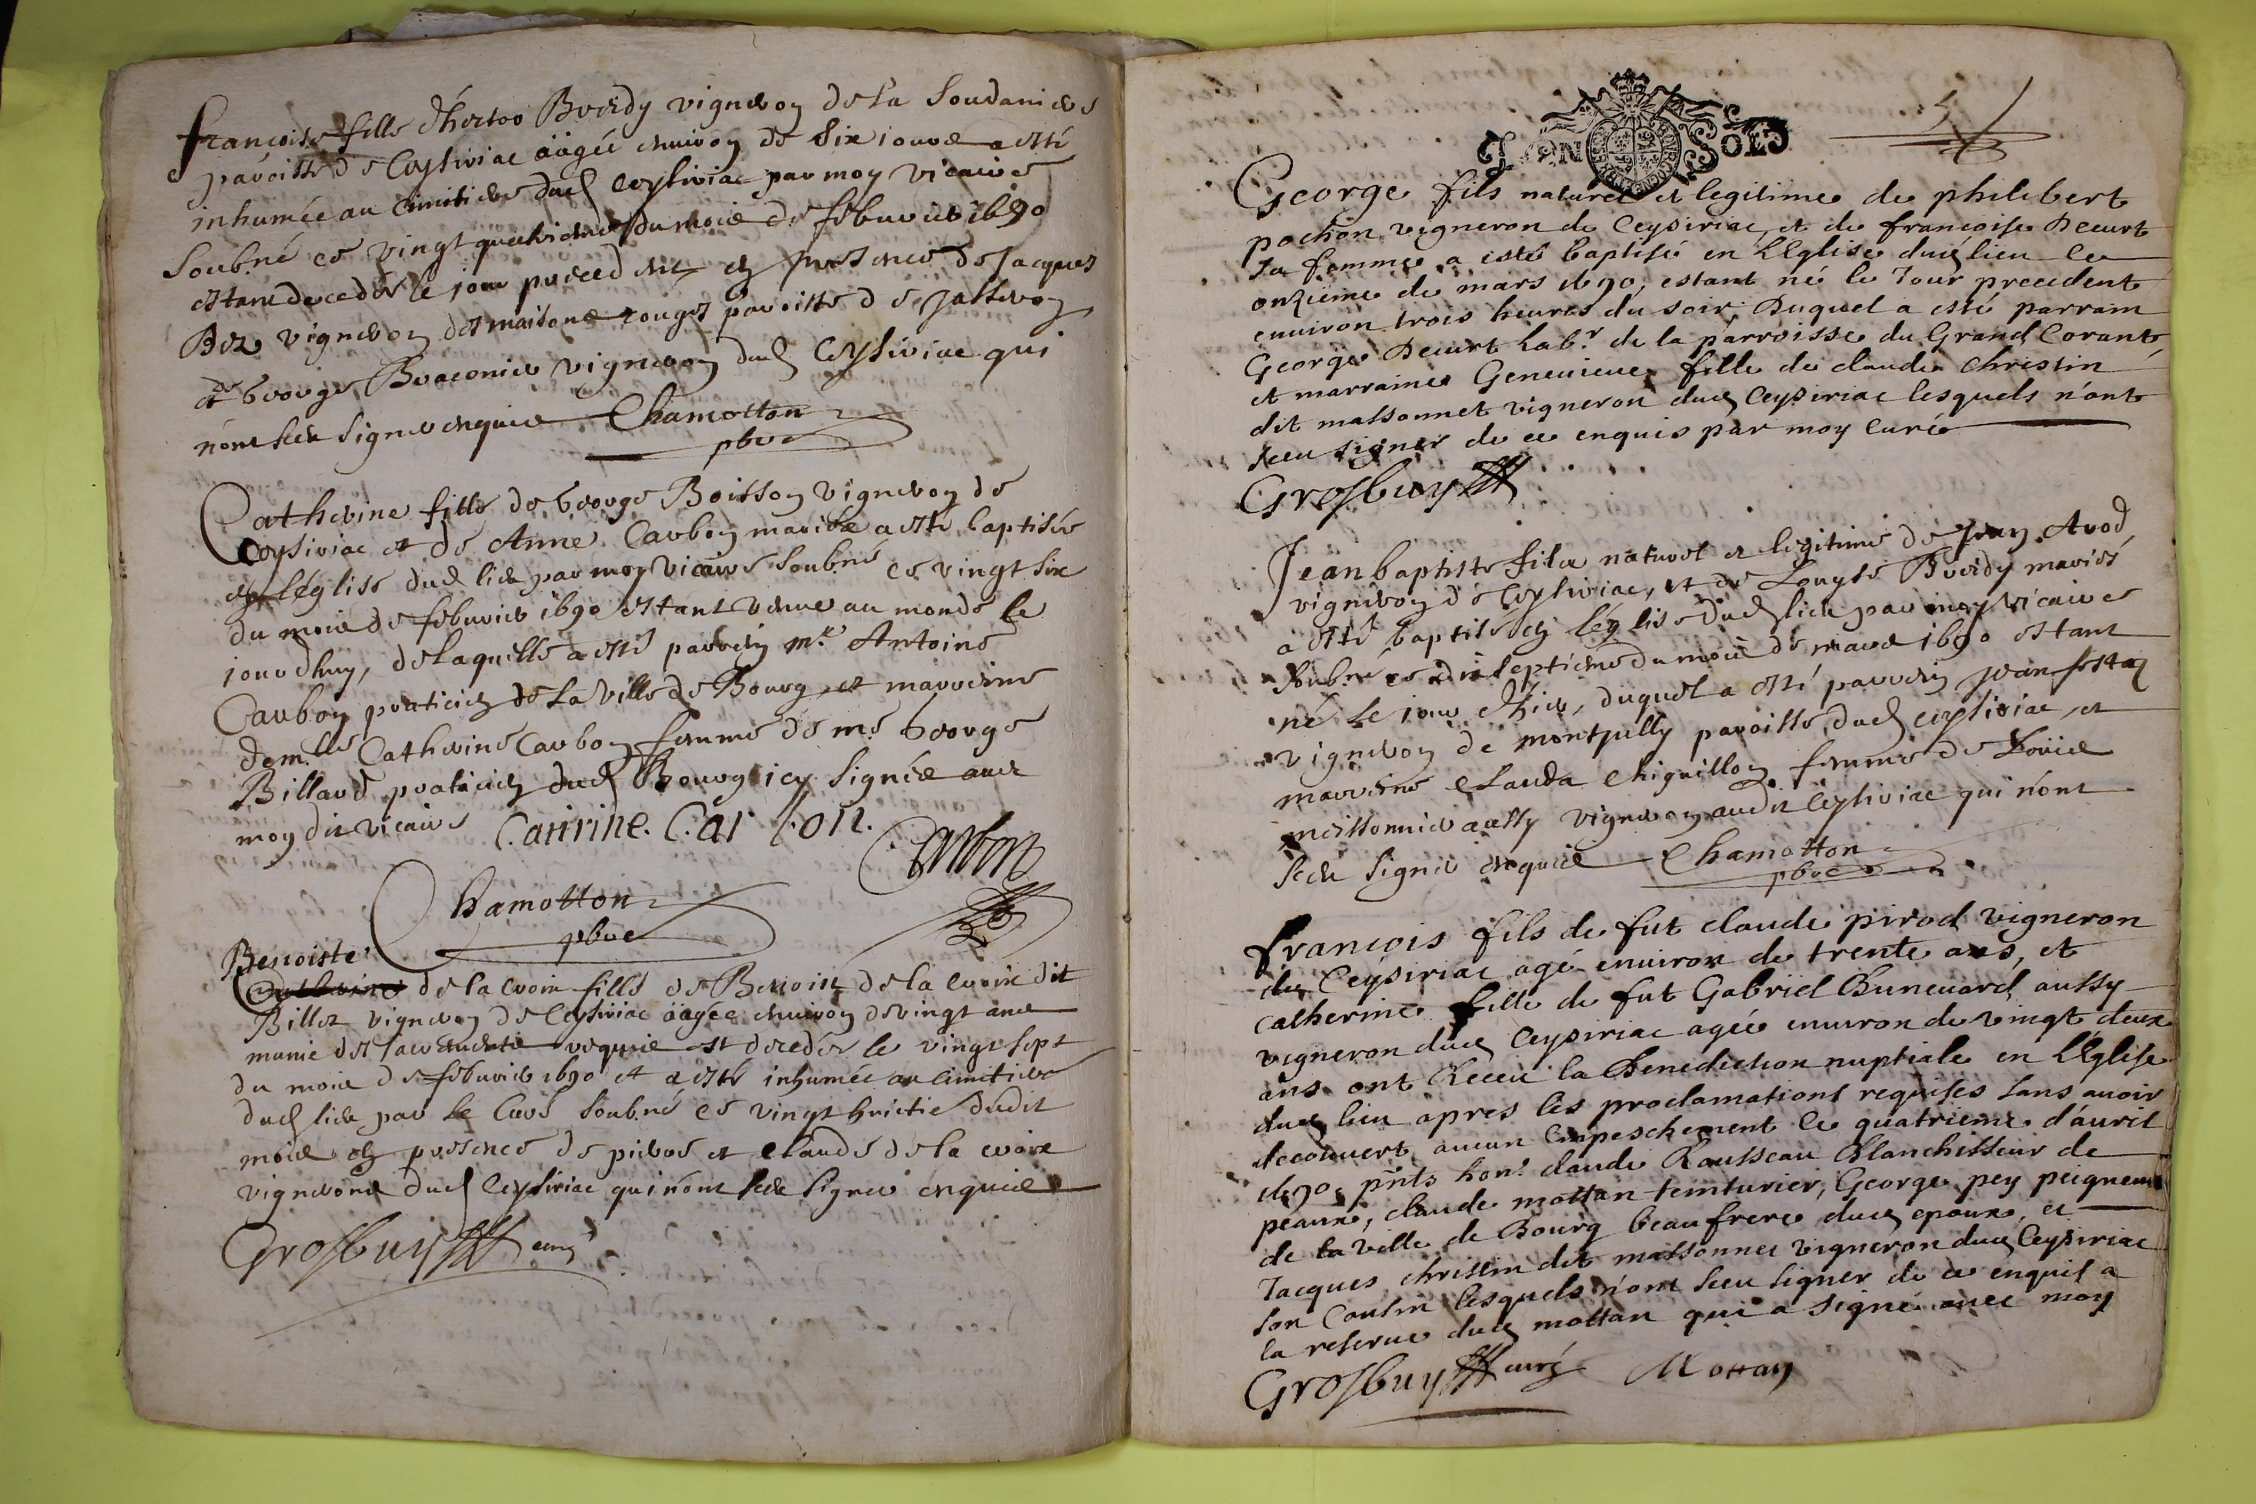 françoise fille d'hector Breidy vigneron de la Soudaniere
paroisse de Ceysiriac aagée environ de six jours a esté
inhumée au cimitiere dud Ceysiriac par moy vicaire
soubné ce vingt quatrieme du mois de febvrier 1690
estant decedée le jour precedent en presence de Jacques
Bez vigneron des maisons rouges paroisse de Jasseron
et George Braconier vigneron dud Ceysiriac qui
n'ont sceu signer enquis Chamotton
pbre
Catherine fille de George Boisson vigneron de
Ceysiriac et de Anne Carbon mariée a esté baptisée
en léglise dud lieu par moy vicaire soubné ce vingt six
du mois de febvrier 1690 estant venue au monde le
jourdhuy, de laquelle a esté parrein mre Antoine
Carbon praticien de la ville de Bourg et marreine
demlle Catherine Carbon femme de me George
Billard praticien dud Bourg icy signée avec
moy dit vicaire Catirine. Carbon.
Carbon
Chamotton
pbre
Benoiste
Catherine de la croix fille de Benoist de la croix dit
Billet vigneron de Ceysiriac aagée environ de vingt ans
munie des sacrements requis est decedée le vingt sept
du mois de febvrier 1690 et a esté inhumée au cimitiere
dud lieu par le curé soubné ce vingt huictie dudit
mois en presence de pierre et claude de la croix
vignerons dud Ceysiriac qui n'ont sceu signer enquis
Grosbuy curé
5
George fils naturel et legitime de philibert
pochon vigneron de Ceysiriac, et de françoise Decurt
sa femme a esté baptisé en l'Eglise dud lieu le
onzieme de mars 1690, estant né le Jour precedent
environ trois heures du soir, Duquel a esté parrain
George Decurt labr. de la parroisse du Grand Corant,
et marraine Genevieve fille de claude christin
dit massonnet vigneron dud Ceysiriac lesquels n'ont
sceu signer de ce enquis par moy curé
Grosbuy
Jean baptiste fils naturel et legitime de Jean Arod
vigneron de Ceysiriac, et de Louyse Breidy mariés
a esté baptisé en léglise dud lieu par moy vicaire
soubné ce dix septieme du mois de mars 1690 estant
né le jour d'hier, duquel a esté parrein jean
vigneron de montjully paroisse dud ceysiriac, et
marreine Clauda Chiquillon femme de Louis
meissonnier aussy vigneron audit Ceysiriac qui n'ont
sceu signer enquis Chamotton
pbre
françois fils de fut claude pirod vigneron
du Ceysiriac agé environ de trente ans, et
catherine fille de fut Gabriel Bunevard aussy
vigneron dud Ceysiriac agée environ de vingt deux
ans ont Receu la Benediction nuptiale en L'Eglise
dud lieu apres les proclamations requises sans avoir
decouvert aucun empeschement le quatrieme d'avril
1690, pnts hon. claude Rousseau Blanchisseur de
peaux, claude mottan teinturier, George pey peigneur
de la ville de Bourg beaufrere dud epoux, et
Jacques christin dit massonnet vigneron dud Ceysiriac
son Cousin lesquels n'ont sceu signer de ce enquis a
la reserve dud mottan qui a signé avec moy
Grosbuy curé Mottan